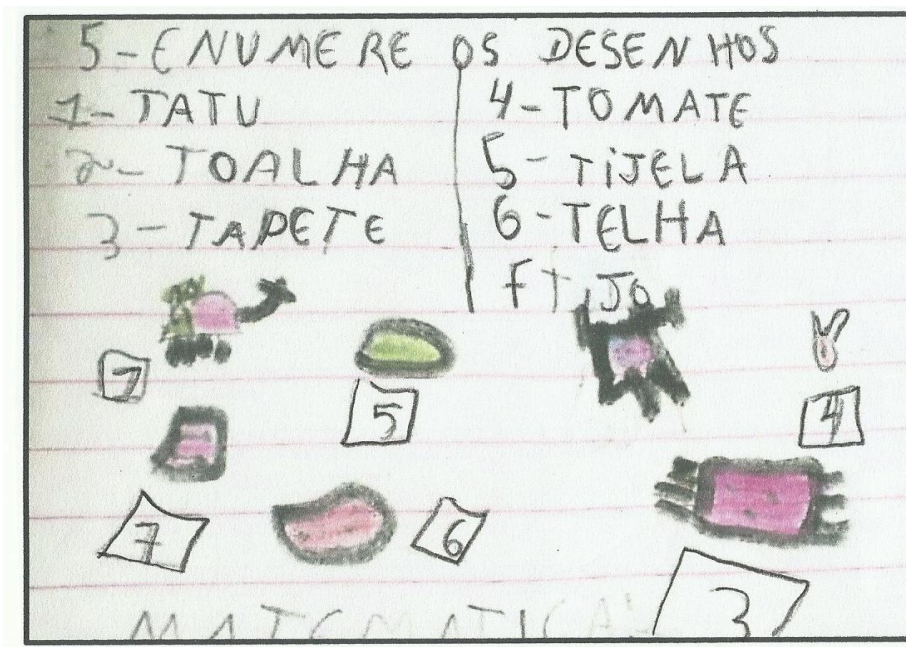 5-ENUMERE OS DESENHOS
1-TATU
2-TOALHA
3-TAPETE
4-TOMATE
5-TiJELA
6-TELHA
7 TiJO
1
5
4
7
6
3
MATEMATICA